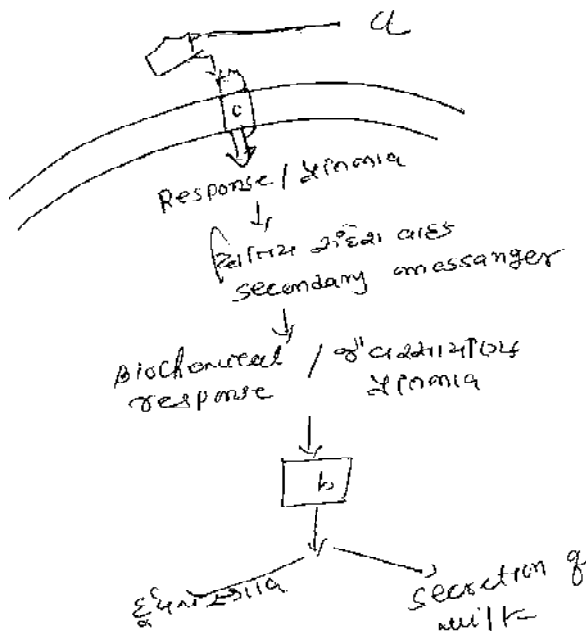 a
c
Response / પ્રતિભાવ
દ્વિતિય સંદેશા વાહક
secondary messanger
Biochemical / જૈવરાસાયણિક
response પ્રતિભાવ
b
દુધનો સ્ત્રાવ
secretion of
milk